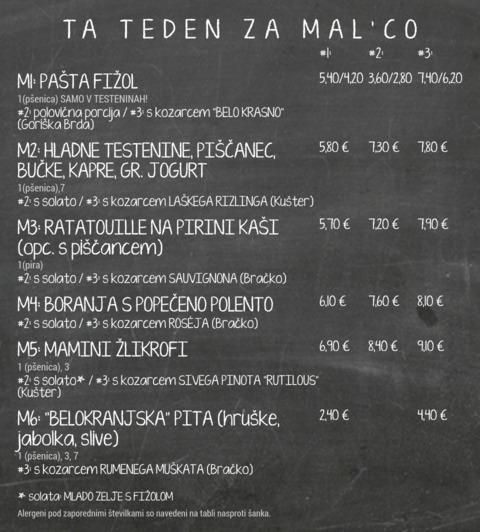 TA TEDEN ZA MAL'CO
#1: #2: #3:
M1: PAŠTA FIŽOL 5,40/4,20 3,60/2,80 7,40/6,20
1(pšenica) SAMO V TESTENINAH!
#2: polovična porcija / #3: s kozarcem "BELO KRASNO"
(Goriška Brda)
M2: HLADNE TESTENINE, PIŠČANEC, 5,80 € 7,30 € 7,80 €
BUČKE, KAPRE, GR. JOGURT
1(pšenica),7
#2: s solato / #3: s kozarcem LAŠKEGA RIZLINGA (Kušter)
M3: RATATOUILLE NA PIRINI KAŠI 5,70 € 7,20 € 7,90 €
(opc. s piščancem)
1(pira)
#2: s solato / #3: s kozarcem SAUVIGNONA (Bračko)
M4: BORANJA S POPEČENO POLENTO 6,10 € 7,60 € 8,10 €
#2: s solato / #3: s kozarcem ROSÉJA (Bračko)
M5: MAMINI ŽLIKROFI 6,90 € 8,40 € 9,10 €
1(pšenica), 3
#2: s solato* / #3: s kozarcem SIVEGA PINOTA "RUTILOUS"
(Kušter)
M6: "BELOKRANJSKA" PITA (hruške, 2,40 € 4,40 €
jabolka, slive)
1 (pšenica), 3, 7
#3: s kozarcem RUMENEGA MUŠKATA (Bračko)
* solata: MLADO ZELJE S FIŽOLOM
Alergeni pod zaporednimi številkami so navedeni na tabli nasproti šanka.